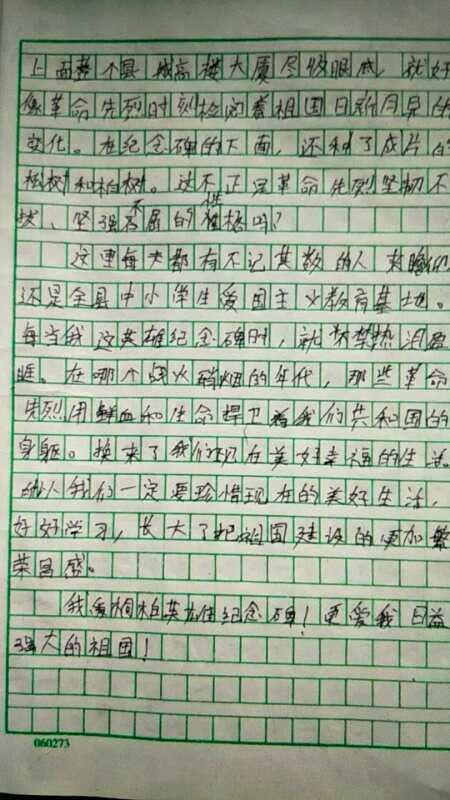 上面整个县城高楼大厦尽收眼底，就好
像革命先烈时刻检阅着祖国日新月异的
变化。在纪念碑的下面，还种了成片的
松树和柏树。这不正是革命先烈坚韧不
拔、坚强不屈的性格吗？
这里每天都有不记其数的人来瞻仰
还是全县中小学生爱国主义教育基地。
每当我这英雄纪念碑时，就不禁热泪盈
眶。在哪个战火硝烟的年代，那些革命
先烈用鲜血和生命捍卫着我们共和国的
身躯。换来了我们现在美好幸福的生活。
我们一定要珍惜现在的美好生活，
好好学习，长大了把祖国建设的更加繁
荣昌盛。
我爱桐柏英雄纪念碑！更爱我日益
强大的祖国！
060273